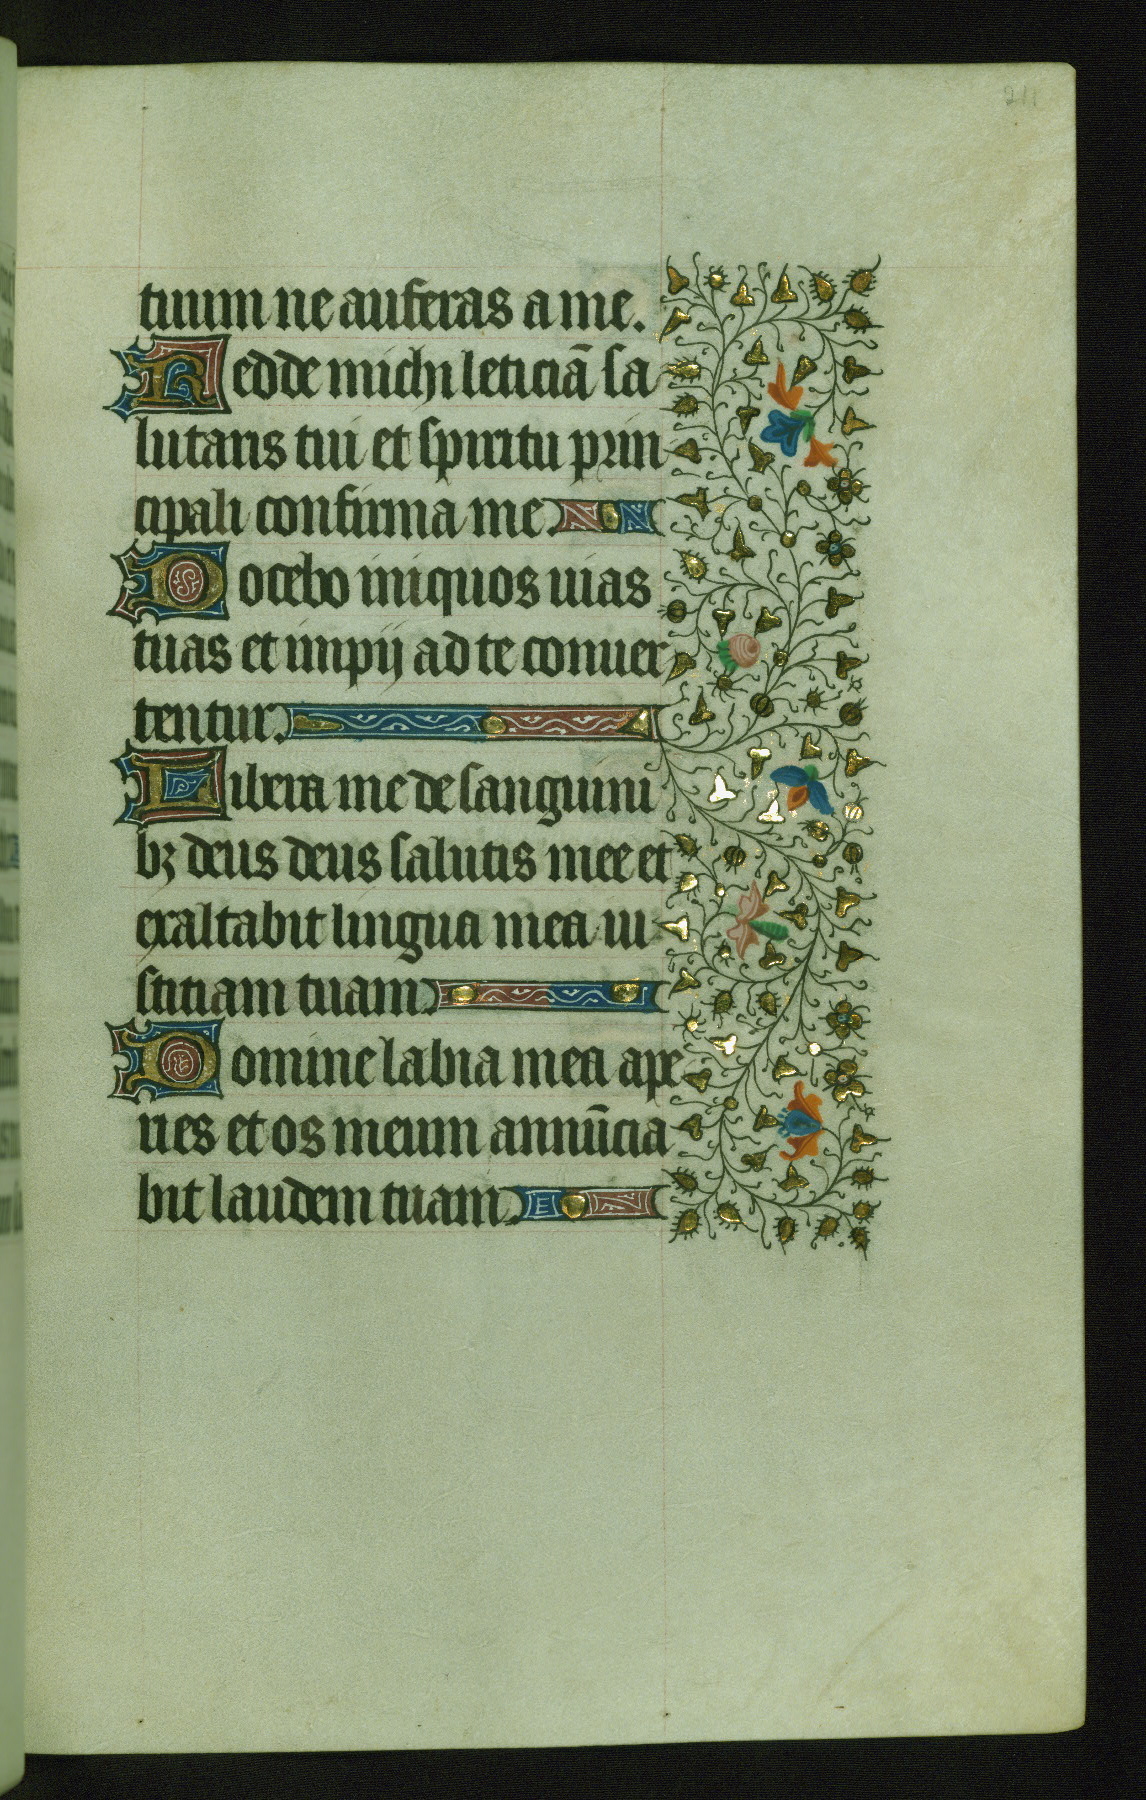 211
tuum ne auferas a me.
Redde michi leticiā sa
lutaris tui et spiritu prin
cipali confirma me
Docebo iniquos uias
tuas et impij ad te conuer
tentur.
Libera me de sanguini
bꝫ deus deus salutis mee et
exaltabit lingua mea iu
stitiam tuam
Domine labia mea ape
ries et os meum annūcia
bit laudem tuam